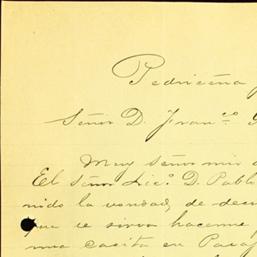 Pedriceña
Señor D. Fran.co
Muy señor mio
El señor Lic.o D. Pablo
nido la bondad, de deci
que se sirva hacerme
una casita en